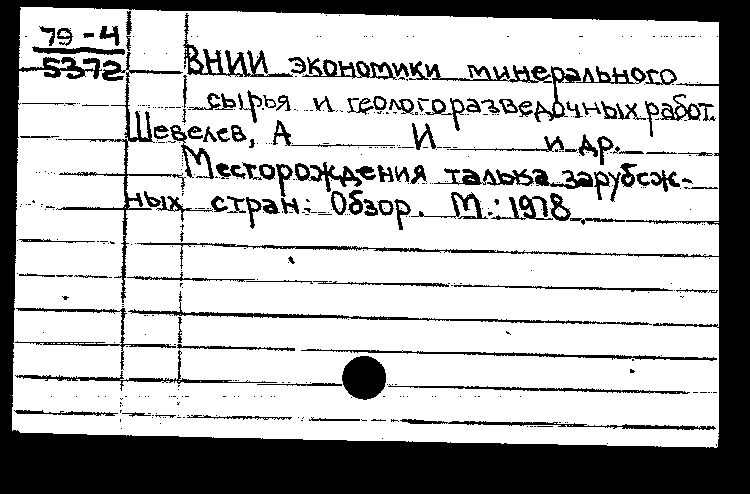 79-4
5372
ВНИИ экономики минерального
сырья и геологоразведочных работ.
Шевелев, А И и др.
Месторождения талька зарубеж-
ных стран: Обзор. М.: 1978